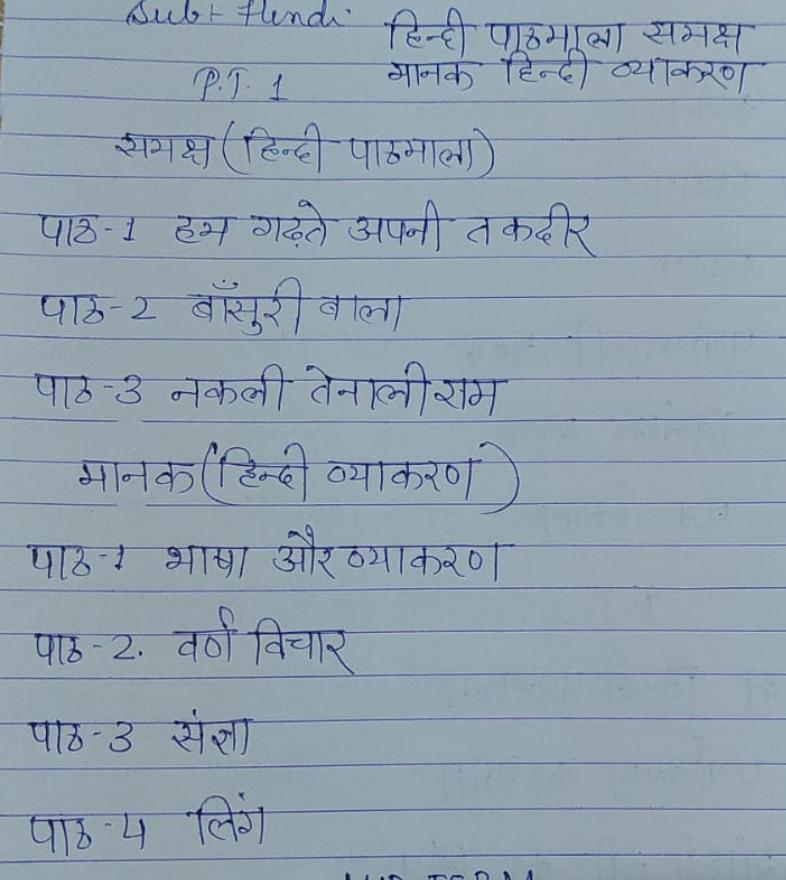 Sub:- Hindi हिन्दी पाठमाला समक्ष
P.T. 1 मानक हिन्दी व्याकरण
समक्ष (हिन्दी पाठमाला)
पाठ-1 हम गढ़ते अपनी तकदीर
पाठ-2 बाँसुरी वाला
पाठ-3 नकली तेनालीराम
मानक (हिन्दी व्याकरण)
पाठ-1 भाषा और व्याकरण
पाठ-2. वर्ण विचार
पाठ-3 संज्ञा
पाठ-4 लिंग